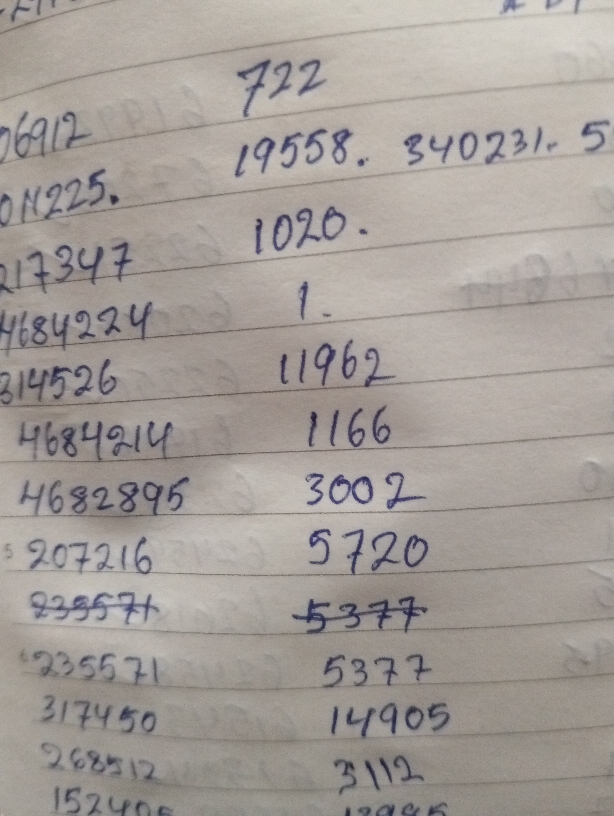 722
06912 19558. 340231. 5
011225.
217347 1020.
4684224 1.
314526 11962
4684214 1166
4682895 3002
207216 5720
235571 5377
235571 5377
317450 14905
268512 3112